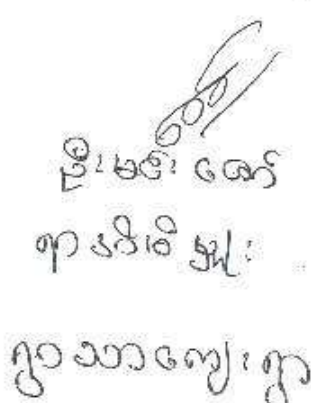 ဦးမင်းဇော်
ရာအိမ်မှူး
ရွာသာကျေးရွာ